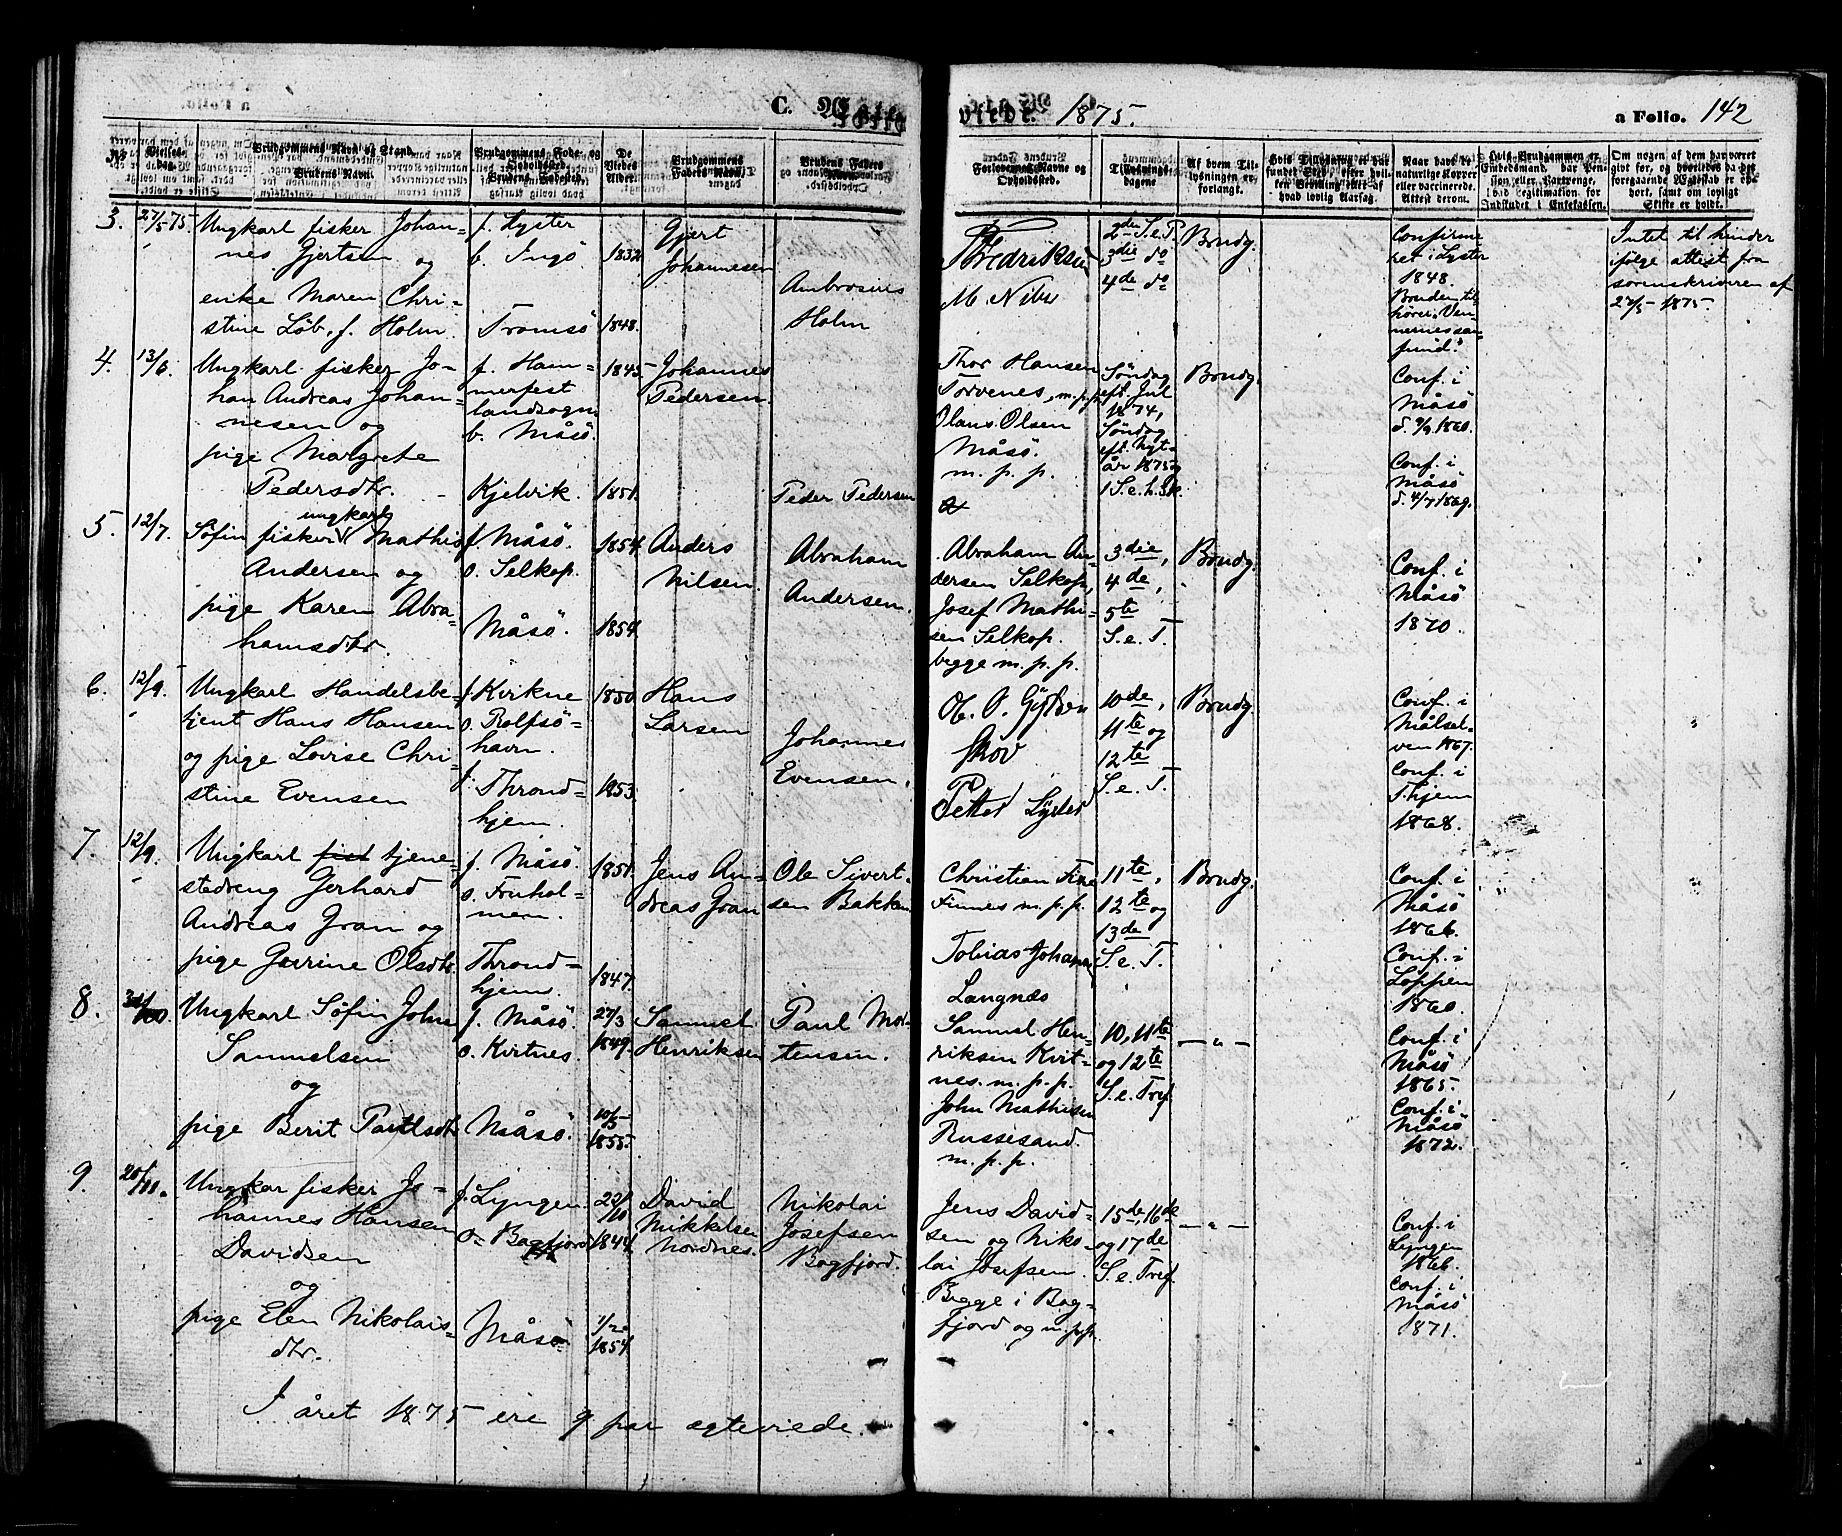 C. Ægte
viede. 1875.
a Folio. 142
No.
Vielses-
dag.
Brudgommens Navn og Stand.
Brudens Navn.
Brudgommens Føde- og
Opholdssted.
Brudens Fødested.
De
Viedes
Alder.
Brudgommens
Faders Navn.
Brudens Faders
Navn
Forlovernes Navne og
Opholdssted.
Tillysnings-
dagene
Af hvem Til-
lysningen er
forlangt.
Naar havt de
naturlige Kopper
eller vaccinerede.
Attest derom.
Hvis Brudgommen er
Embedsmand, har Pen-
sion eller Vartpenge,
Indskudet i Enkekassen.
Om nogen af dem har været
gift før, og hvorledes da det
foregaaende Ægteskab er op-
hørt, samt om lovligt
Skifte er holdt.
3. 27/5 75.
Ungkarl fisker Johan-
nes Gjertsen og
enke Maren Chri-
stine Løb, f. Holm
f. Lyster
b. Ingö
Tromsö
1832
1848.
Gjert
Johannesen
Ambrosius
Holm
Fredriksen
M. Nibe
2den S. e. P.
3die do
4de do
Brudg.
Confirme
ret i Lyster
1848.
Bruden til
hører Ven-
nernes sam
fund.
Intet til hinder
ifølge attest fra
sorenskriveren af
27/5 1875
4. 13/6.
Ungkarl fisker Jo-
han Andreas Johan-
nesen og
pige Margrete
Pedersdtr.
f. Ham-
merfest
landsogn
b. Måsö.
Kjelvik.
1845
1851.
Johannes
Pedersen.
Peder Pedersen
Thor Hansen
Torvenes, m.p.p.
Olaus Olsen
Måsö.
m. p. p.
Søndag
eft. Jul
1874,
Søndag
eft. Nyt-
år 1875 og
1 S. e. h. 3k.
Brudg.
Conf. i
Måsö
1860.
Conf. i
Måsö
d. 4/7 1869.
5. 12/7.
ungkarl
Søfin fisker Mathis
Andersen og
pige Karen Abra
hamsdtr.
f. Måsö.
o. Selkop.
Måsö.
1854.
1854.
Anders
Nilsen
Abraham
Andersen.
Abraham An-
dersen Selkop,
Josef Mathi-
sen Selkop.
begge m. p. p.
3die,
4de,
5te
S. e. T.
Brudg.
Conf. i
Måsö
1870.
6. 12/9.
Ungkarl Handelsbe-
tjent Hans Hansen
og pige Lovise Chri-
stine Evensen
f. Kvikne
o. Rolfsö-
havn.
f. Thrond-
hjem.
1850
1853.
Hans
Larsen
Johannes
Evensen.
Skov
Petter Lyder
10de,
11te og
12te
S. e. T.
Brudg.
Conf. i
Målsel-
ven 1867.
Conf. i
T.hjem
1868.
7. 12/9.
Ungkarl fisk tjene-
stedreng Gerhard
Andreas Gran og
pige Gurine Olsdtr.
f. Måsö.
o. Fruhol-
men.
Thrond-
hjem.
1851.
1847.
Jens An-
dreas Gran
Ole Sivert-
sen Bakken
Christian Fine
Finnes m. p. p.
Tobias Johan
Langnæs
11te,
12te og
13de
S. e. T.
Brudg.
Conf. i
Måsö
1866.
Conf. i
Loppen
1860.
8.
Ungkarl Søfin John
Samuelsen
og
pige Berit Paulsdtr.
f. Måsö.
o. Kvitnes.
Måsö.
27/3
1849.
10/5
1855.
Samuel
Henriksen
Paul Mor-
tensen.
Samuel Hen-
riksen Kvit-
nes. m. p. p.
John Mathisen
Russesand.
m. p. p.
10, 11te
og 12te
S. e. Tref.
— „ —
Conf. i
Måsö
1865.
Conf. i
Måsö
1872.
9. 20/11.
Ungkar fisker Jo-
hannes Hansen
Davidsen
og
pige Elen Nikolais-
dtr.
f. Lyngen
o. Bagfjord
Måsö
22/10
1844.
1/2
1854.
David
Mikkelsen
Nordnes.
Nikolai
Josefsen
Bagfjord.
Jens David-
sen og Niko
lai Josefsen.
Begge i Bag-
fjord og m.p.p.
15de, 16de
og 17de
S. e. Tref.
— „ —
Conf. i
Lyngen
1866.
Conf. i
Måsö
1871.
I året 1875 ere 9 par ægteviede.